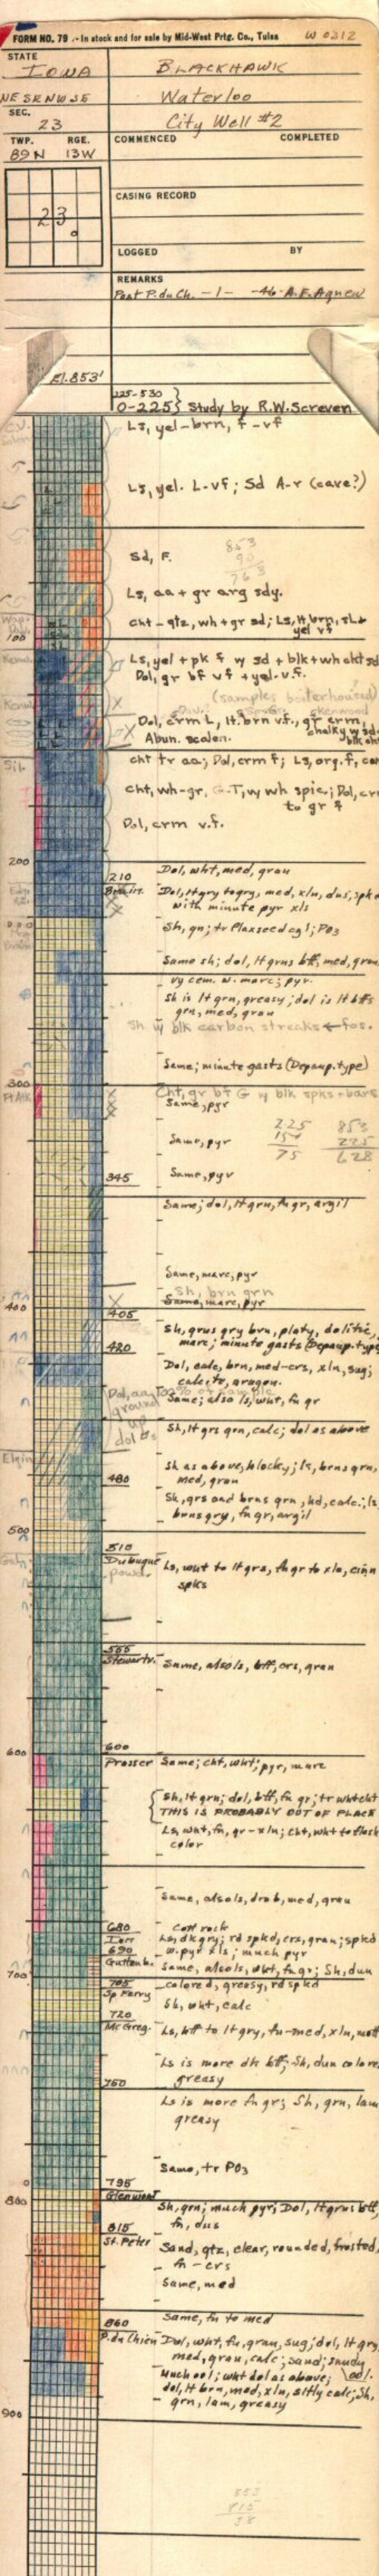 FORM NO. 79 .- In stock and for sale by Mid-West Prtg. Co., Tulsa W 0212
STATE
IOWA BLACKHAWK
NE SE NW SE Waterloo
SEC.
23 City Well #2
TWP. RGE. COMMENCED COMPLETED
89N 13W
CASING RECORD
23
LOGGED BY
REMARKS
Post P.du Ch. -1- -46- A.F. Agnew
El. 853'
225-530
0-225} Study by R.W. Screven
Ls, yel-brn, f-vf
Ls, yel. L-vf; Sd A-r (cave?)
Sd, F.
853
90
763
Ls, aa + gr arg sdy.
cht - qtz, wh + gr sd; Ls, lt brn, sL+
yel vf
100
Ls, yel + pk f w sd + blk + wh cht sd
Dol, gr bf vf + yel. v.f.
Dol, crm L, lt. brn v.f., gr crm,
chalky w sd
Abun. scolen.
Sil.
cht tr aa; Dol, crm f; Ls, org. f,
cht, wh-gr, G-T, w wh spic; Dol,
to gr f
Dol, crm v.f.
200
210 Dol, wht, med, gran
Dol, lt gry to gry, med, xln, dns, spkd
with minute pyr xls
Sh, gn; tr Flaxseed cgl; PO3
Same sh; dol, lt grns bff, med, gran
vy cem. w. marc; pyr.
Sh is lt grn, greasy; dol is lt bff
grn, med, gran
Sh w blk carbon streaks ← fos.
Same; minute gasts (Depaup. type)
300
Cht, gr bf G w blk spks + bars
Same, pyr
225 853
154 225
75 628
Same, pyr
345 Same, pyr
Same; dol, lt grn, fn gr, argil
Same, marc, pyr
Sh, brn grn
400 Same, marc, pyr
405
Sh, grns gry brn, platy, dolitic,
420 marc; minute gasts (Depaup. type)
Dol, calc, brn, med-crs, xln, sug;
calcite, aragon.
Dol, aa, 100% of sample
ground up
dol
Same; also ls, wht, fn gr
Sh, lt grs grn, calc; dol as above
Elgin
Sh as above, blocky; ls, brns grn,
480 med, gran
Sh, grs and brns grn, hd, calc.; ls
brns gry, fn gr, argil
500
510
Dubuque Ls, wht to lt gra, fn gr to xln, cinn
spks
555
Stewartv. Same, also ls, bff, crs, gran
600 600
Prosser Same; cht, wht; pyr, marc
{Sh, lt grn; dol, bff, fn gr; tr wht cht
THIS IS PROBABLY OUT OF PLACE
Ls, wht, fn, gr-xln; cht, wht to flesh
color
Same, also ls, drab, med, gran
680 coff rock
Ion Ls, dk gry; rd spkd, crs, gran; spkd
690 w. pyr xls; much pyr
Guttenb. Same, also ls, wht, fn gr; Sh, dun
700
705 colored, greasy, rd spkd
Sp Ferry
Sh, wht, calc
720
McGreg. Ls, bff to lt gry, fn-med, xln, mott
Ls is more dk bff; Sh, dun colore
750 greasy
Ls is more fn gr; Sh, grn, lam
greasy
Same, tr PO3
795
800 Glenwood
Sh, grn; much pyr; Dol, lt grns bff,
815 fn, dns
St. Peter Sand, qtz, clear, rounded, frosted,
fn-crs
Same, med
860 Same, fn to med
P. du Chien Dol, wht, fn, gran, sug; dol, lt gry,
med, gran, calc; sand; sandy
Much ool; wht dol as above; ool.
dol, lt brn, med, xln, sltly calc; Sh,
grn, lam, greasy
900
853
815
38